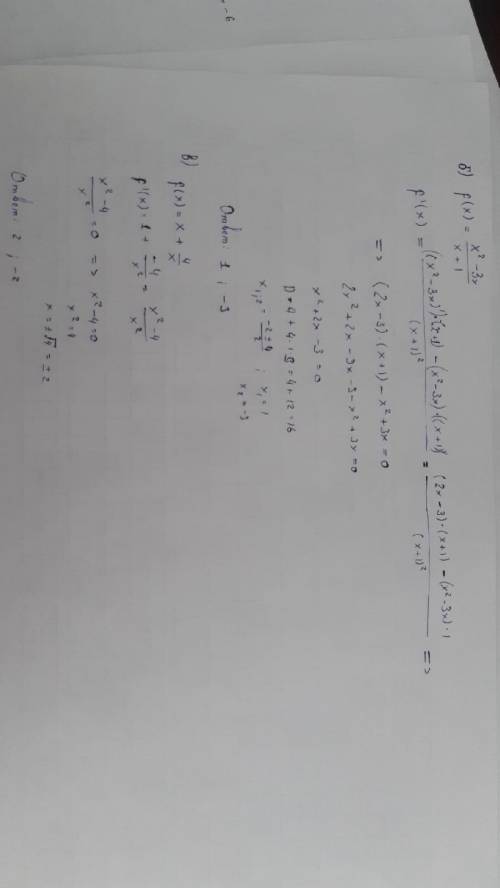 б) f(x) = x² - 3x / x + 1
f'(x) = ((x² - 3x)')·(x+1) - (x² - 3x)·((x+1)' / (x+1)² = (2x - 3)·(x+1) - (x² - 3x)·1 / (x+1)² =>
=> (2x - 3)·(x+1) - x² + 3x = 0
2x² + 2x - 3x - 3 - x² + 3x = 0
x² + 2x - 3 = 0
D = 4 + 4·3 = 4 + 12 = 16
x₁,₂ = -2 ± 4 / 2 ; x₁ = 1
x₂ = -3
Ответ: 1 ; -3
в) f(x) = x + 4/x
f'(x) = 1 + -4/x² = x² - 4 / x²
x² - 4 / x² = 0 => x² - 4 = 0
x² = 4
x = ±√4 = ±2
Ответ: 2 ; -2
- 6